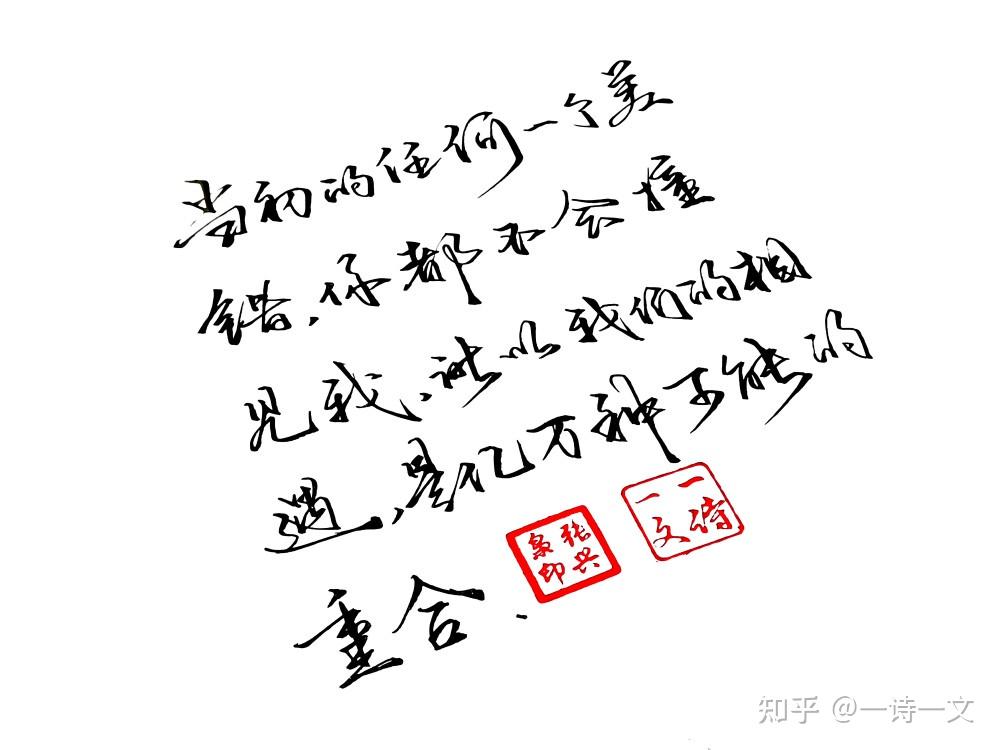 当初的任何一个差
错，你都不会撞
见我，所以我们的相
遇，是亿万种可能的
重合.
张兴
印
一诗
一文
知乎 @一诗一文